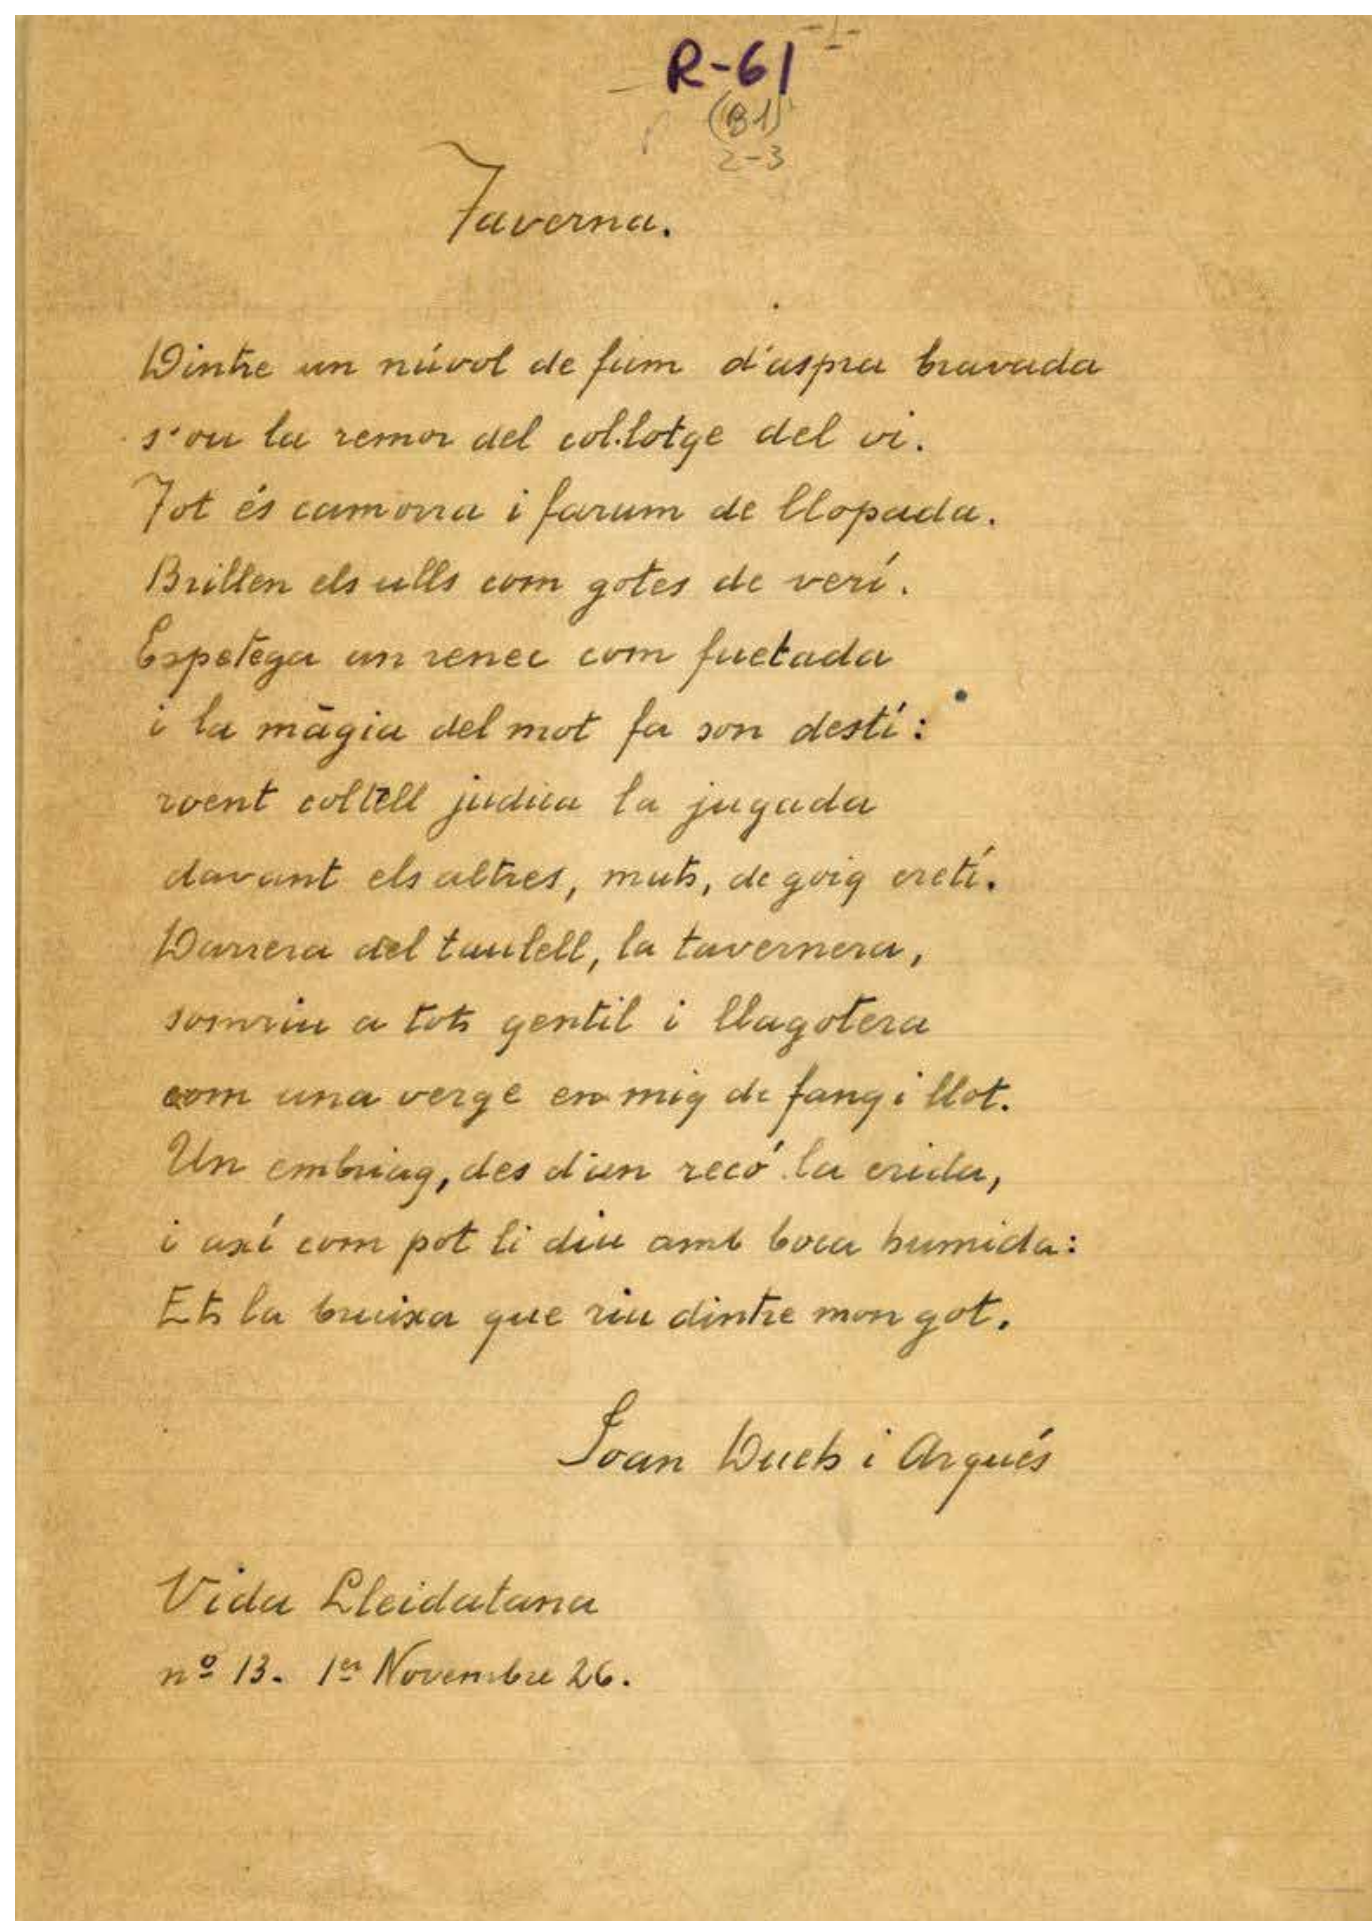 R-61
(B1)
2-3
Taverna.
Dintre un núvol de fum d'aspra bravada
s'ou la remor del col·lotge del vi.
Tot és camorra i farum de llopada.
Brillen els ulls com gotes de verí.
Espetega un renec com fuetada
i la màgia del mot fa son destí:
roent coltell judica la jugada
davant els altres, muts, de goig cretí.
Darrera del taulell, la tavernera,
somriu a tots gentil i llagotera
com una verge en mig de fang i llot.
Un embriag, des d'un recó la crida,
i axí com pot li diu amb boca humida:
Ets la bruixa que riu dintre mon got.
Joan Duch i Arqués
Vida Lleidatana
nº 13. 1er Novembre 26.